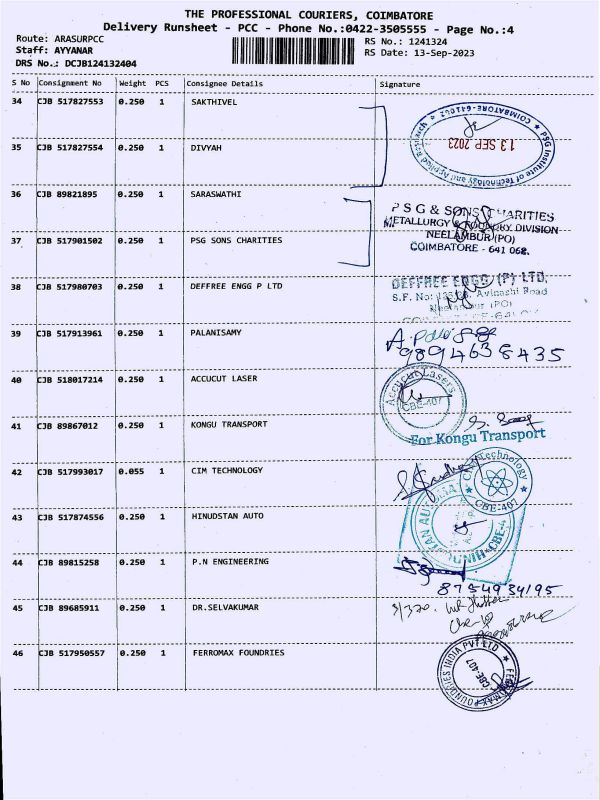 THE PROFESSIONAL COURIERS, COIMBATORE
Delivery Runsheet - PCC - Phone No.:0422-3505555 - Page No.:4
Route: ARASURPCC
RS No.: 1241324
Staff: AYYANAR
RS Date: 13-Sep-2023
DRS No.: DCJB124132404
S No Consignment No Weight PCS Consignee Details Signature
34 CJB 517827553 0.250 1 SAKTHIVEL
PSG Institute of Technology and Applied Research
COIMBATORE-641062
13 SEP 2023
35 CJB 517827554 0.250 1 DIVYAH
36 CJB 89821895 0.250 1 SARASWATHI
PSG & SONS CHARITIES
METALLURGY & FOUNDRY DIVISION
NEELAMBUR (PO)
COIMBATORE - 641 062.
37 CJB 517901502 0.250 1 PSG SONS CHARITIES
38 CJB 517980703 0.250 1 DEFFREE ENGG P LTD
DEFFREE ENGG (P) LTD.
S.F. No: Avinashi Road
(PO)
39 CJB 517913961 0.250 1 PALANISAMY
9894638435
40 CJB 518017214 0.250 1 ACCUCUT LASER
Accucut Lasers
CBE-407
41 CJB 89867012 0.250 1 KONGU TRANSPORT
For Kongu Transport
42 CJB 517993017 0.055 1 CIM TECHNOLOGY
CIM Technology
CBE-407
43 CJB 517874556 0.250 1 HINUDSTAN AUTO
44 CJB 89815258 0.250 1 P.N ENGINEERING
8754934195
45 CJB 89685911 0.250 1 DR.SELVAKUMAR
46 CJB 517950557 0.250 1 FERROMAX FOUNDRIES
FERROMAX FOUNDRIES INDIA PVT LTD
CBE-407